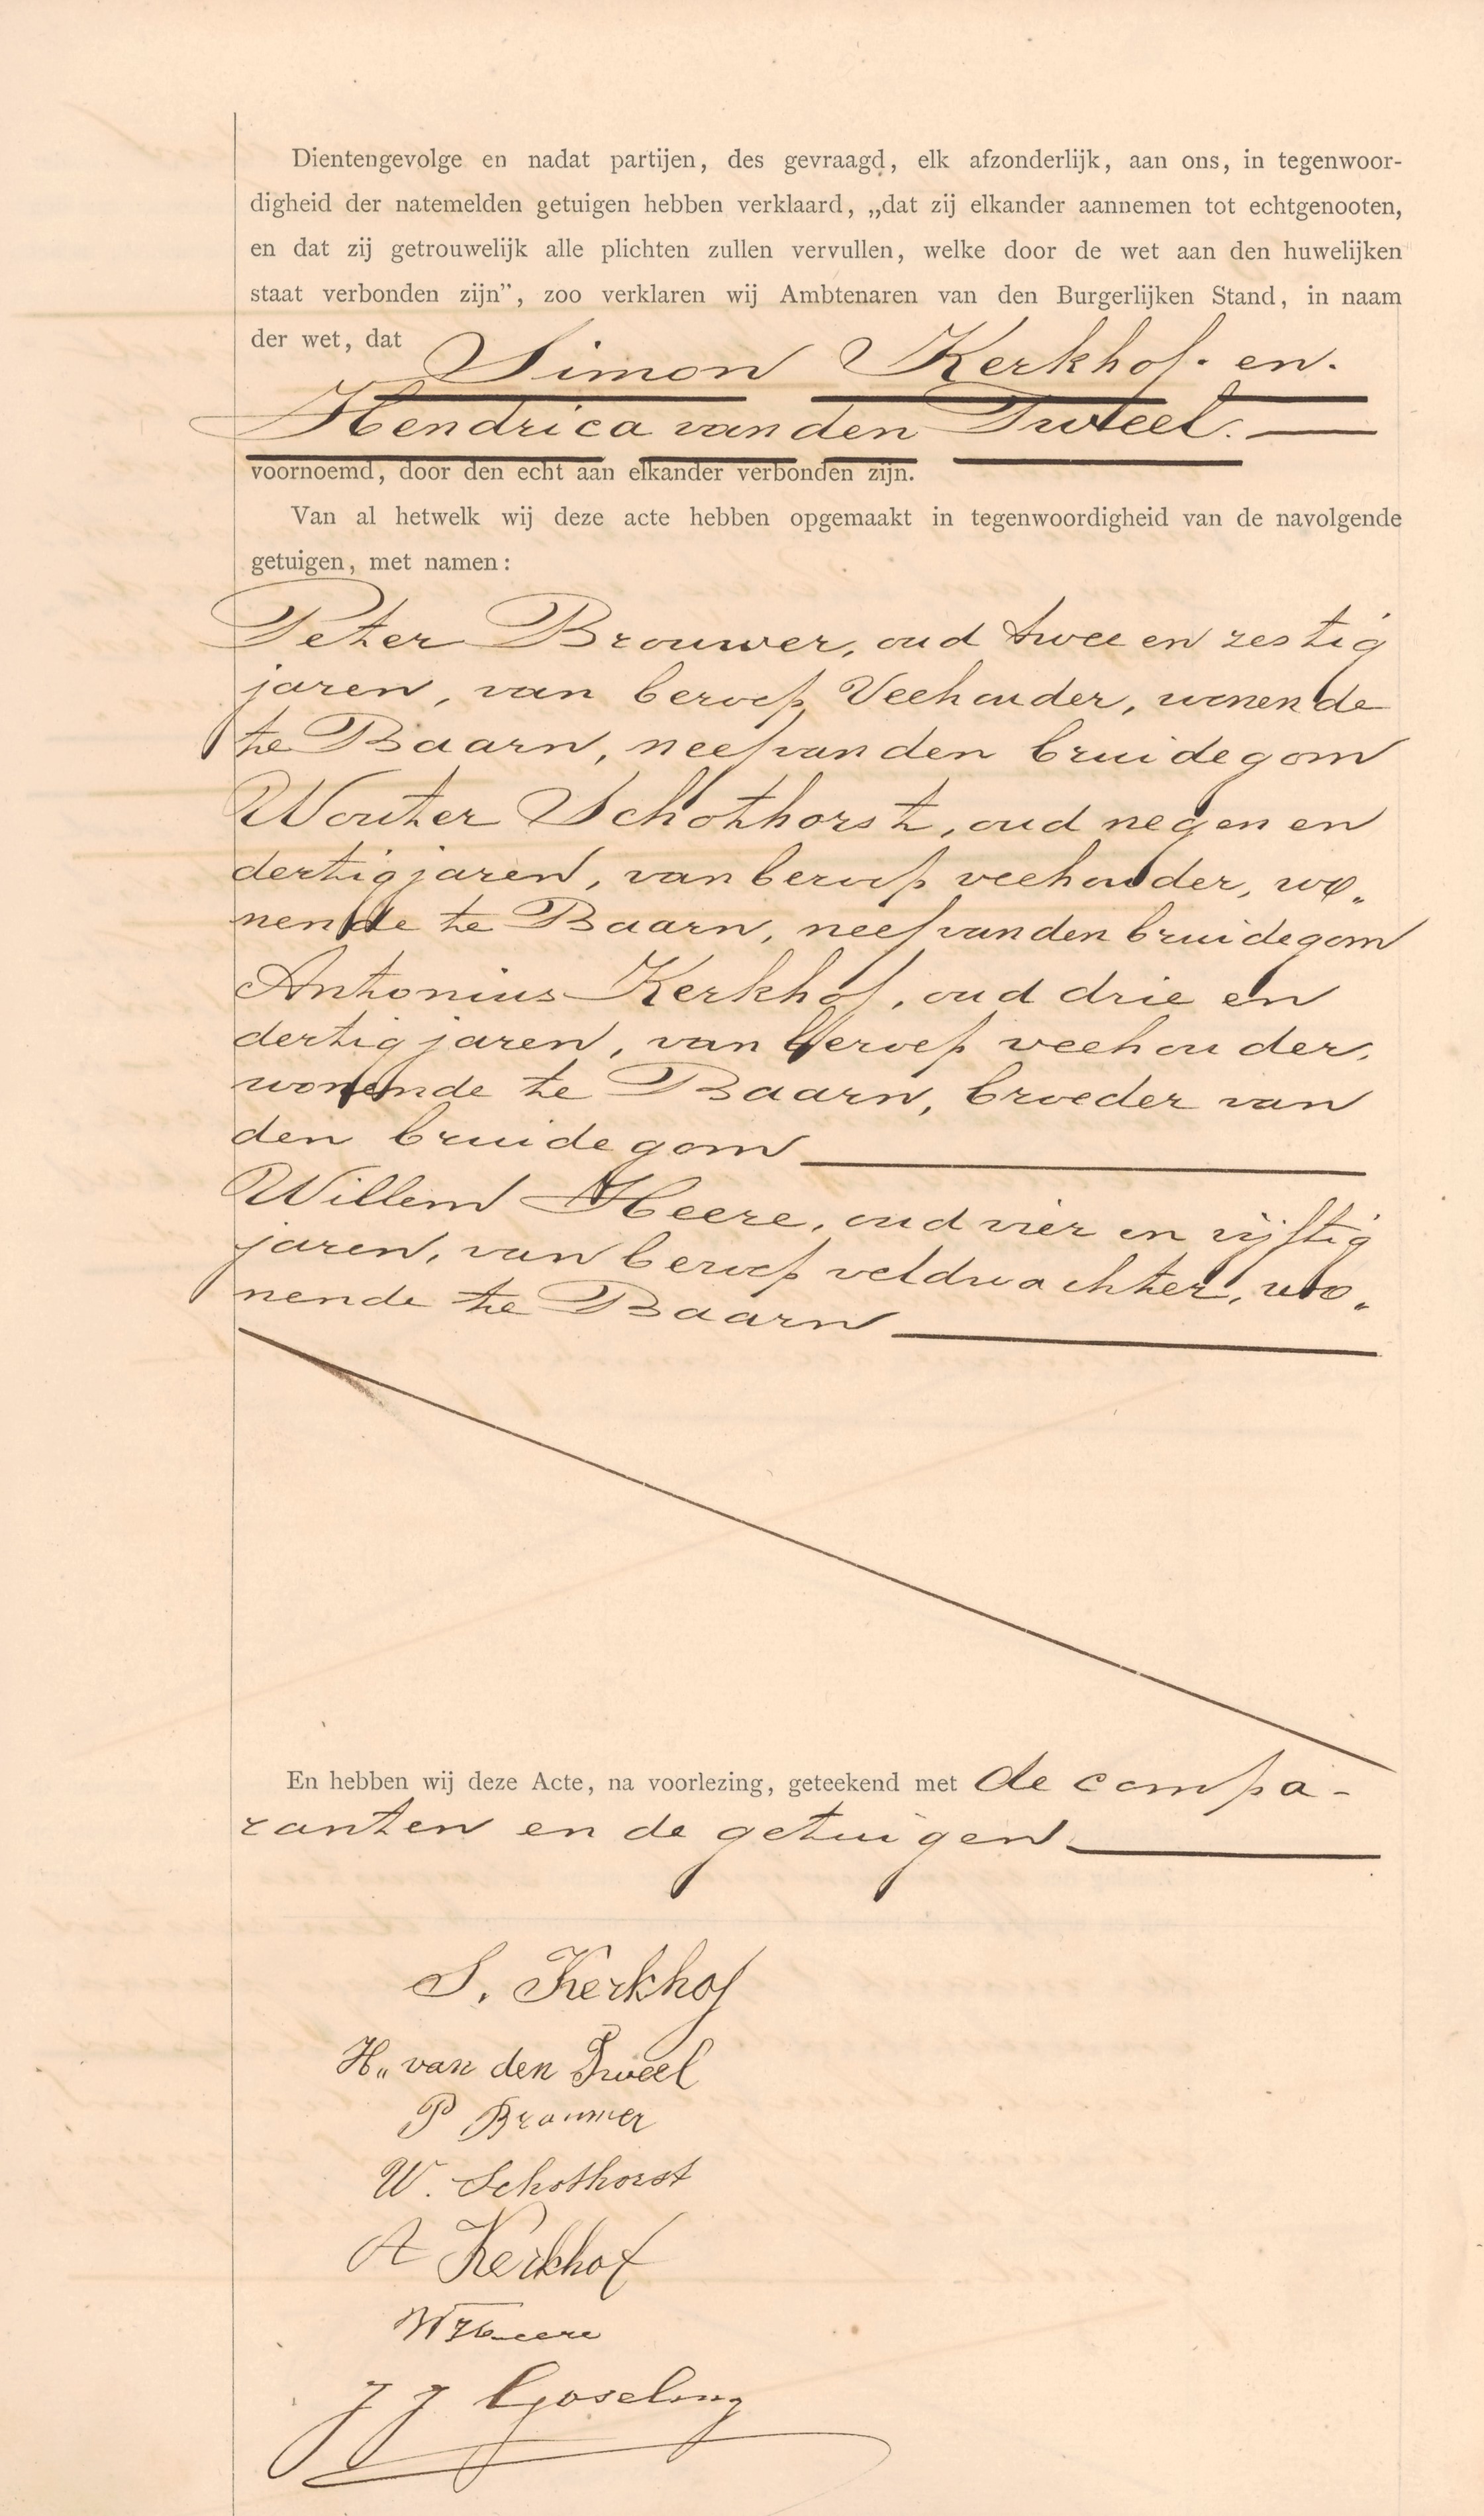 Dientengevolge en nadat partijen, des gevraagd, elk afzonderlijk, aan ons, in tegenwoor-
digheid der natemelden getuigen hebben verklaard, „dat zij elkander aannemen tot echtgenooten,
en dat zij getrouwelijk alle plichten zullen vervullen, welke door de wet aan den huwelijken
staat verbonden zijn”, zoo verklaren wij Ambtenaren van den Burgerlijken Stand, in naam
der wet, dat Simon Kerkhof. en.
Hendrica van den Tweel.
voornoemd, door den echt aan elkander verbonden zijn.
Van al hetwelk wij deze acte hebben opgemaakt in tegenwoordigheid van de navolgende
getuigen, met namen:
Peter Brouwer, oud twee en zestig
jaren, van beroep Veehouder, wonende
te Baarn, neef van den bruidegom
Wouter Schothorst, oud negen en
dertig jaren, van beroep veehouder, wo„
nende te Baarn, neef van den bruidegom
Antonius Kerkhof, oud drie en
dertig jaren, van beroep veehouder,
wonende te Baarn, broeder van
den bruidegom
Willem Heere, oud vier en vijftig
jaren, van beroep veldwachter, wo„
nende te Baarn
En hebben wij deze Acte, na voorlezing, geteekend met de compa-
ranten en de getuigen
S. Kerkhof
H„ van den Tweel
P Brouwer
W. Schothorst
A Kerkhof
W Heere
J J Goseling